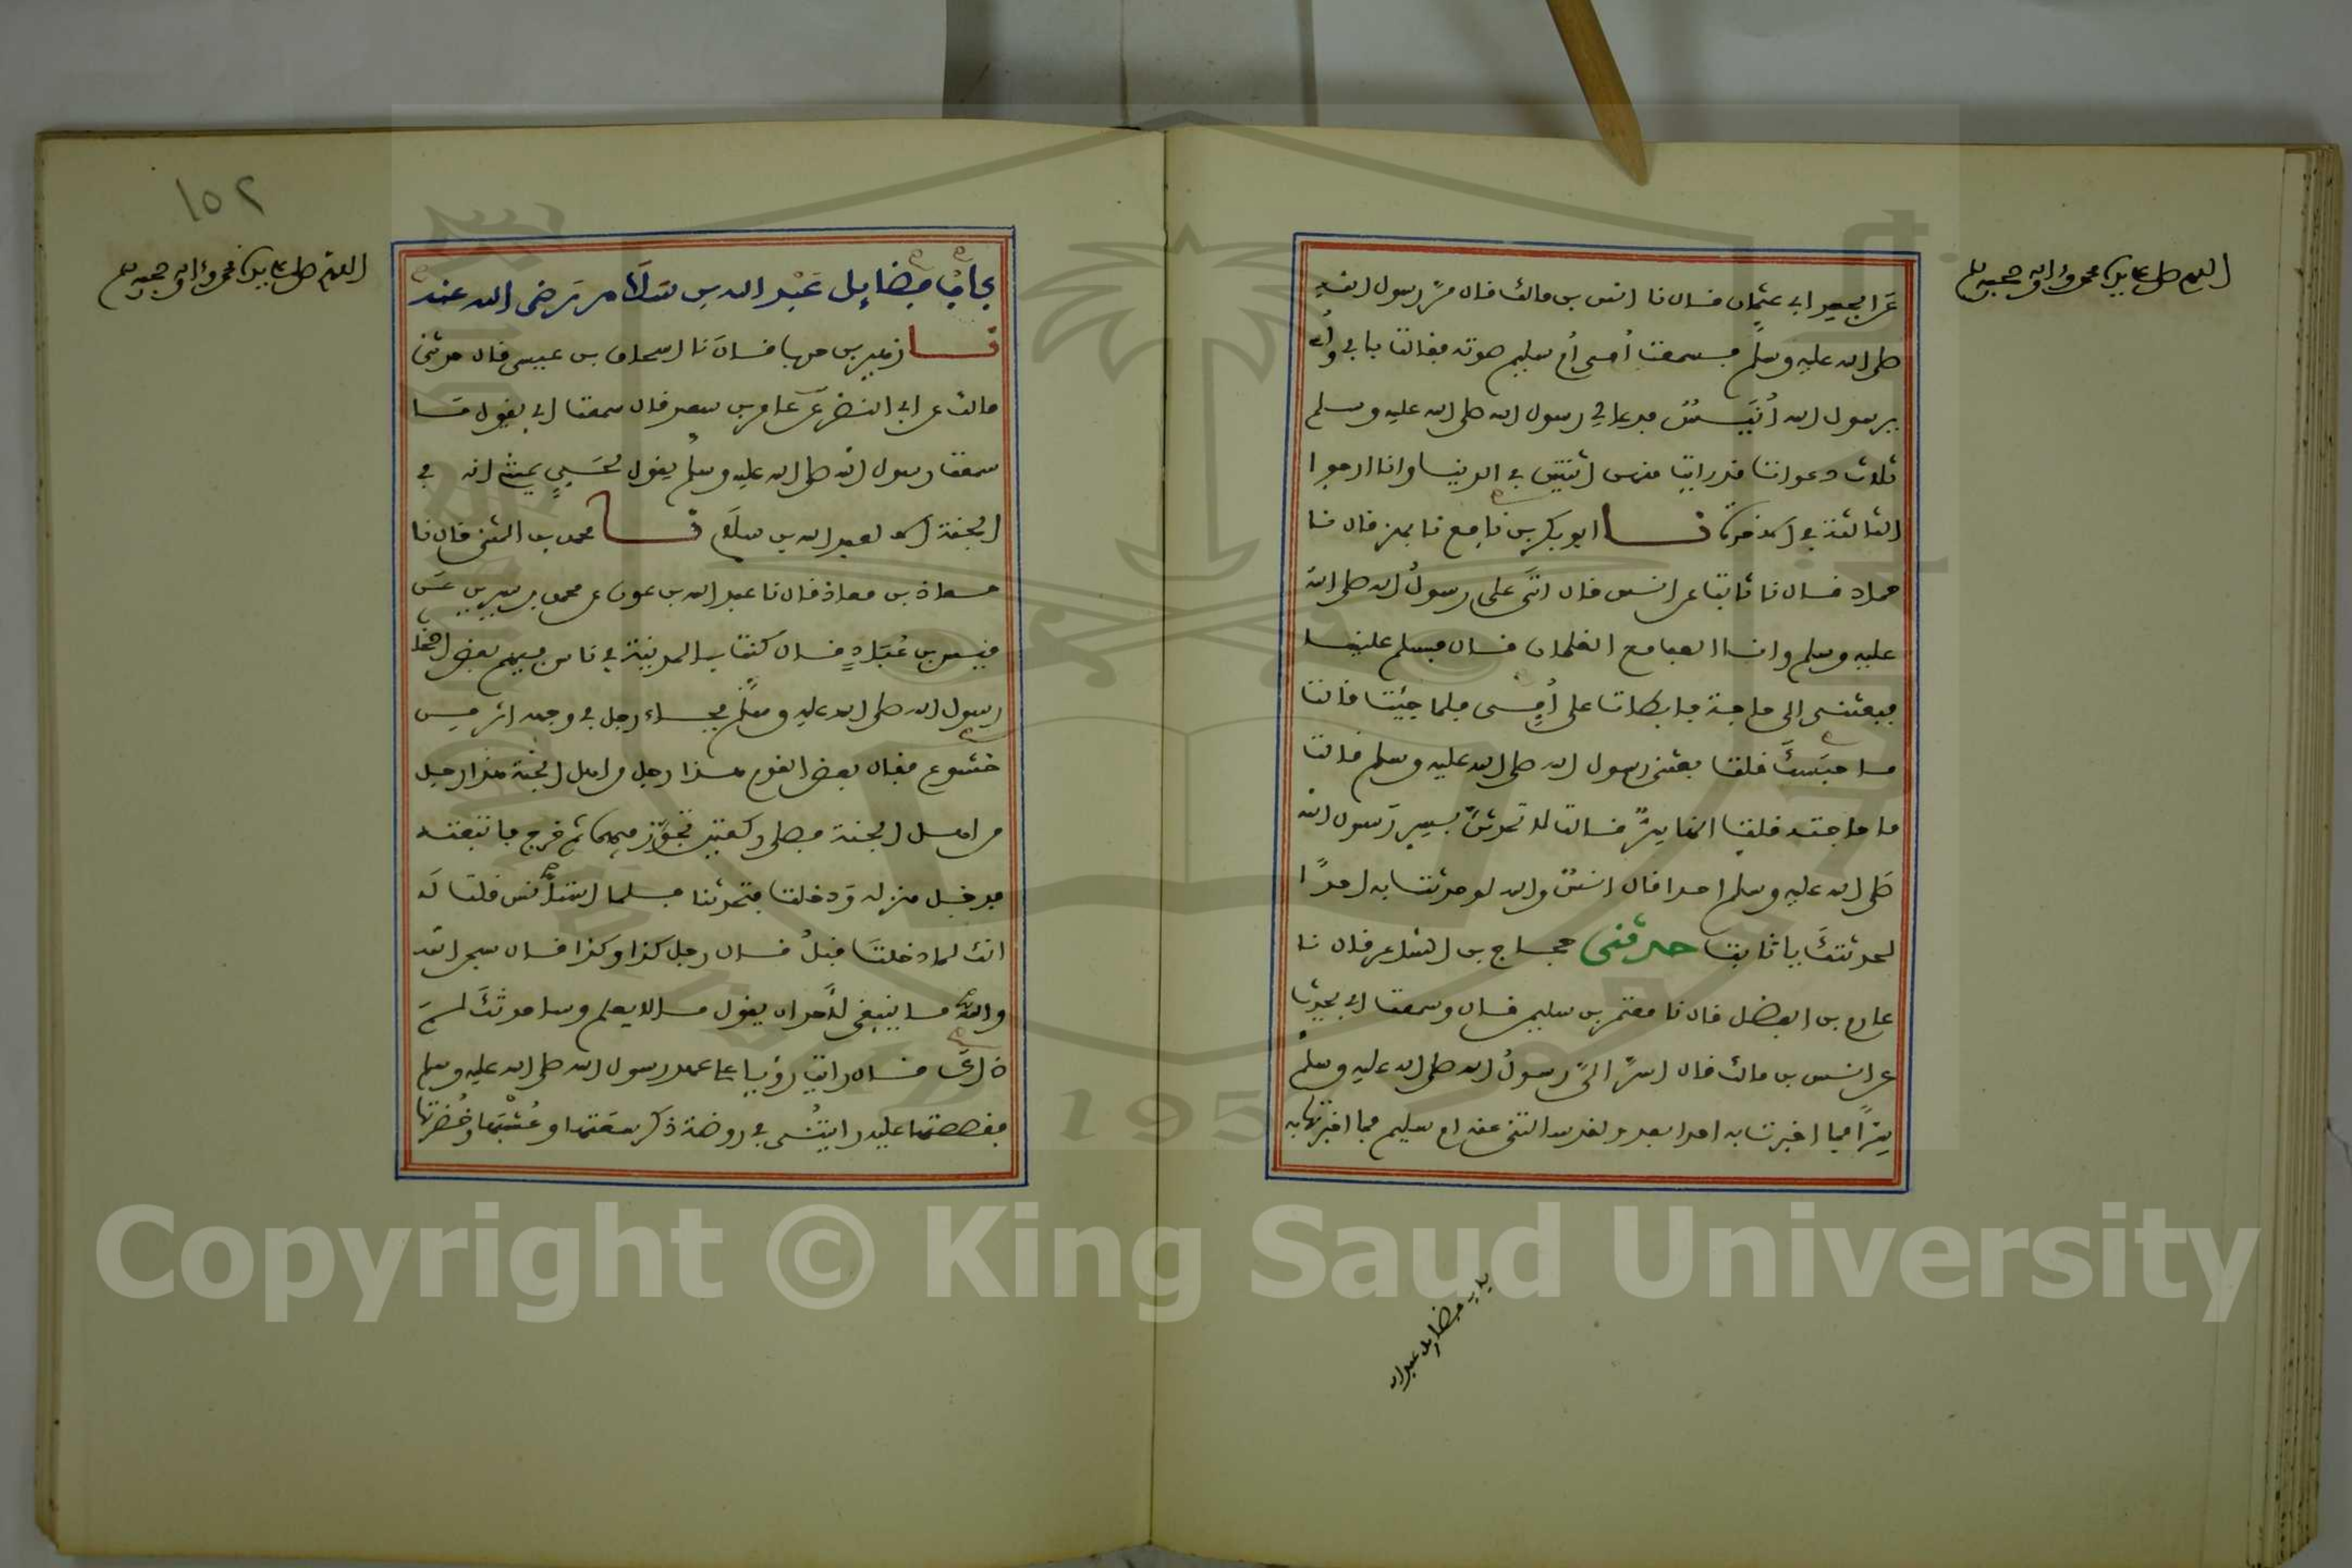 اللهم صل على سيدنا محمد وءاله وصحبه وسلم
عن الجعد ابي عثمان قال نا انس بن مالك قال مر رسول الله
صلى الله عليه وسلم فسمعت أمي أم سليم صوته فقالت بابي وأمي
يرسول الله أنيس فدعا لي رسول الله صلى الله عليه وسلم
ثلاث دعوات قد رايت منهن اثنتين في الدنيا وانا ارجوا
الثالثة في الاخرة نا ابو بكر بن نافع نا بهز قال نا
حماد قال نا ثابت عن انس قال اتى علي رسول الله صلى الله
عليه وسلم وانا العب مع الغلمان قال فسلم علينا
فبعثني الى حاجة فابطات على أمي فلما جئت قالت
ما حبسك فلت بعثني رسول الله صلى الله عليه وسلم قالت
ما حاجته قلت انها سر قالت لا تحدثن بسر رسول الله
صلى الله عليه وسلم احدا قال انس والله لو حدثت به احدا
لحدثتك يا ثابت حدثني حجاج بن الشاعر قال نا
عارم بن الفضل قال نا معتمر بن سليمن قال وسمعت ابي يحدث
عن انس بن مالك قال اسر الي رسول الله صلى الله عليه وسلم
سرا فما اخبرت به احدا بعد ولقد سالتني عنه ام سليم فما اخبرتها به
باب فضايل عبد الله
١٥٢
اللهم صل على سيدنا محمد وءاله وصحبه وسلم
باب فضايل عبد الله بن سلام رضي الله عنه
نا زهير بن حرب قال نا اسحاق بن عيسى قال حدثني
مالك عن ابي النضر عن عامر بن سعد قال سمعت ابي يقول ما
سمعت رسول الله صلى الله عليه وسلم يقول لحي يمشي انه في
الجنة الا لعبد الله بن سلام نا محمد بن المثنى قال نا
معاذ بن معاذ قال نا عبد الله بن عون عن محمد بن سيرين عن
قيس بن عباد قال كنت بالمدينة في ناس فيهم بعض اصحاب
رسول الله صلى الله عليه وسلم فجاء رجل في وجهه اثر من
خشوع فقال بعض القوم هذا رجل من اهل الجنة هذا رجل
من اهل الجنة فصلى ركعتين تجوز فيهما ثم خرج فاتبعته
فدخل منزله ودخلت فتحدثنا فلما استأنس قلت له
انك لما دخلت قبل قال رجل كذا وكذا قال سبحن الله
والله ما ينبغي لأحد ان يقول ما لا يعلم وساحدثك لم
ذاك قال رايت رؤيا على عهد رسول الله صلى الله عليه وسلم
فقصصتها عليه رايتني في روضة ذكر سعتها وعشبها وخضرتها
Copyright © King Saud University